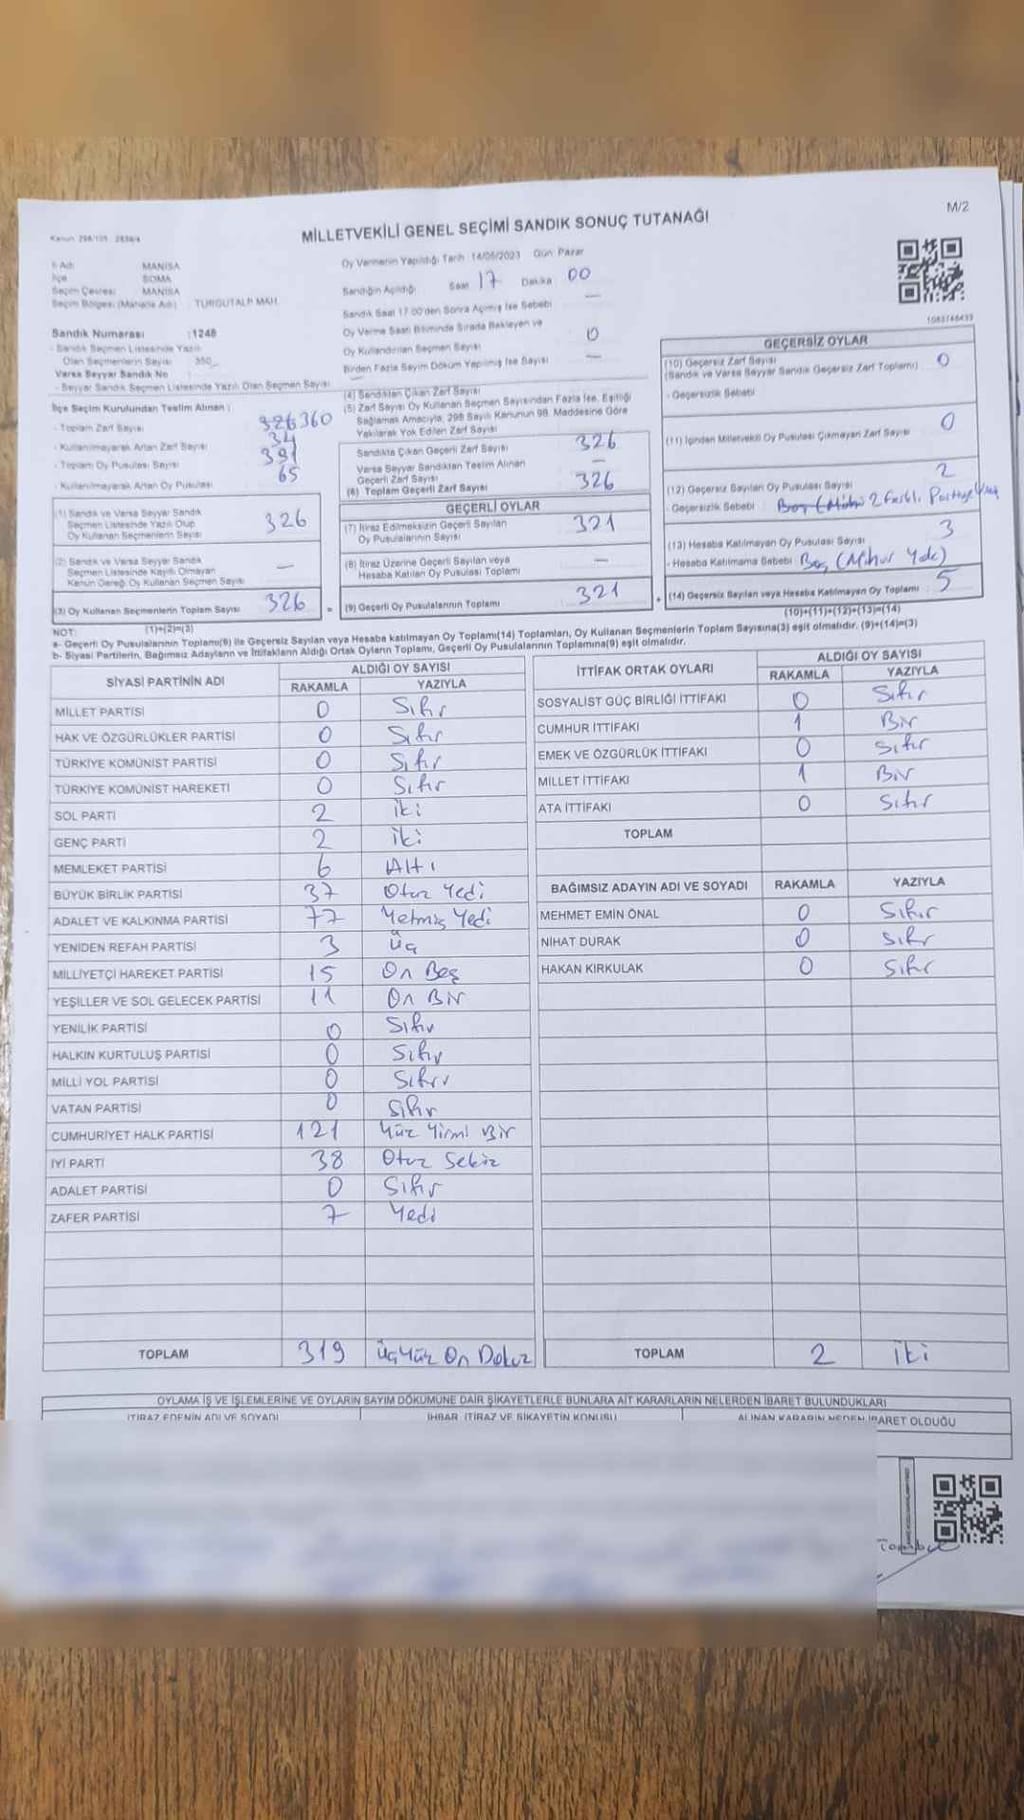 M/2
MİLLETVEKİLİ GENEL SEÇİMİ SANDIK SONUÇ TUTANAĞI
İl Adı MANİSA
İlçe SOMA
Seçim Çevresi MANİSA
Seçim Bölgesi (Mahalle Adı) : TURGUTALP MAH.
Oy Vermenin Yapıldığı Tarih 14/05/2023 Gün Pazar
Sandığın Açıldığı Saat 17 Dakika 00
Sandık Saat 17.00'den Sonra Açılmış İse Sebebi —
Oy Verme Saati Bitiminde Sırada Bekleyen ve
Oy Kullandırılan Seçmen Sayısı 0
Birden Fazla Sayım Döküm Yapılmış İse Sayısı —
Sandık Numarası : 1248
- Sandık Seçmen Listesinde Yazılı
Olan Seçmenlerin Sayısı 350
Varsa Seyyar Sandık No
- Seyyar Sandık Seçmen Listesinde Yazılı Olan Seçmen Sayısı
İlçe Seçim Kurulundan Teslim Alınan :
- Toplam Zarf Sayısı 326 360
- Kullanılmayarak Artan Zarf Sayısı 34
- Toplam Oy Pusulası Sayısı 391
- Kullanılmayarak Artan Oy Pusulası 65
(1) Sandık ve Varsa Seyyar Sandık
Seçmen Listesinde Yazılı Olup
Oy Kullanan Seçmenlerin Sayısı 326
(2) Sandık ve Varsa Seyyar Sandık
Seçmen Listesinde Kayıtlı Olmayan
Kanun Gereği Oy Kullanan Seçmen Sayısı —
(3) Oy Kullanan Seçmenlerin Toplam Sayısı 326
(1)+(2)=(3)
(4) Sandıktan Çıkan Zarf Sayısı
(5) Zarf Sayısı Oy Kullanan Seçmen Sayısından Fazla İse, Eşitliği
Sağlamak Amacıyla, 298 Sayılı Kanunun 98. Maddesine Göre
Yakılarak Yok Edilen Zarf Sayısı
Sandıkta Çıkan Geçerli Zarf Sayısı 326
Varsa Seyyar Sandıktan Teslim Alınan
Geçerli Zarf Sayısı —
(6) Toplam Geçerli Zarf Sayısı 326
GEÇERLİ OYLAR
(7) İtiraz Edilmeksizin Geçerli Sayılan
Oy Pusulalarının Sayısı 321
(8) İtiraz Üzerine Geçerli Sayılan veya
Hesaba Katılan Oy Pusulası Toplamı —
(9) Geçerli Oy Pusulalarının Toplamı 321
GEÇERSİZ OYLAR
(10) Geçersiz Zarf Sayısı
(Sandık ve Varsa Seyyar Sandık Geçersiz Zarf Toplamı) 0
- Geçersizlik Sebebi
(11) İçinden Milletvekili Oy Pusulası Çıkmayan Zarf Sayısı 0
(12) Geçersiz Sayılan Oy Pusulası Sayısı 2
- Geçersizlik Sebebi
(13) Hesaba Katılmayan Oy Pusulası Sayısı 3
- Hesaba Katılmama Sebebi Boş (Mühür Yok)
(14) Geçersiz Sayılan veya Hesaba Katılmayan Oy Toplamı 5
(10)+(11)+(12)+(13)=(14)
NOT:
a- Geçerli Oy Pusulalarının Toplamı(9) ile Geçersiz Sayılan veya Hesaba katılmayan Oy Toplamı(14) Toplamları, Oy Kullanan Seçmenlerin Toplam Sayısına(3) eşit olmalıdır. (9)+(14)=(3)
b- Siyasi Partilerin, Bağımsız Adayların ve İttifakların Aldığı Ortak Oyların Toplamı, Geçerli Oy Pusulalarının Toplamına(9) eşit olmalıdır.
SİYASİ PARTİNİN ADI ALDIĞI OY SAYISI
RAKAMLA YAZIYLA
MİLLET PARTİSİ 0 Sıfır
HAK VE ÖZGÜRLÜKLER PARTİSİ 0 Sıfır
TÜRKİYE KOMÜNİST PARTİSİ 0 Sıfır
TÜRKİYE KOMÜNİST HAREKETİ 0 Sıfır
SOL PARTİ 2 İki
GENÇ PARTİ 2 İki
MEMLEKET PARTİSİ 6 Altı
BÜYÜK BİRLİK PARTİSİ 37 Otuz Yedi
ADALET VE KALKINMA PARTİSİ 77 Yetmiş Yedi
YENİDEN REFAH PARTİSİ 3 Üç
MİLLİYETÇİ HAREKET PARTİSİ 15 On Beş
YEŞİLLER VE SOL GELECEK PARTİSİ 11 On Bir
YENİLİK PARTİSİ 0 Sıfır
HALKIN KURTULUŞ PARTİSİ 0 Sıfır
MİLLİ YOL PARTİSİ 0 Sıfır
VATAN PARTİSİ 0 Sıfır
CUMHURİYET HALK PARTİSİ 121 Yüz Yirmi Bir
İYİ PARTİ 38 Otuz Sekiz
ADALET PARTİSİ 0 Sıfır
ZAFER PARTİSİ 7 Yedi
TOPLAM 319 Üçyüz On Dokuz
İTTİFAK ORTAK OYLARI ALDIĞI OY SAYISI
RAKAMLA YAZIYLA
SOSYALİST GÜÇ BİRLİĞİ İTTİFAKI 0 Sıfır
CUMHUR İTTİFAKI 1 Bir
EMEK VE ÖZGÜRLÜK İTTİFAKI 0 Sıfır
MİLLET İTTİFAKI 1 Bir
ATA İTTİFAKI 0 Sıfır
TOPLAM
BAĞIMSIZ ADAYIN ADI VE SOYADI RAKAMLA YAZIYLA
MEHMET EMİN ÖNAL 0 Sıfır
NİHAT DURAK 0 Sıfır
HAKAN KIRKULAK 0 Sıfır
TOPLAM 2 İki
OYLAMA İŞ VE İŞLEMLERİNE VE OYLARIN SAYIM DÖKÜMÜNE DAİR ŞİKAYETLERLE BUNLARA AİT KARARLARIN NELERDEN İBARET BULUNDUKLARI
İTİRAZ EDENİN ADI VE SOYADI İHBAR, İTİRAZ VE ŞİKAYETİN KONUSU ALINAN KARARIN NEDEN İBARET OLDUĞU